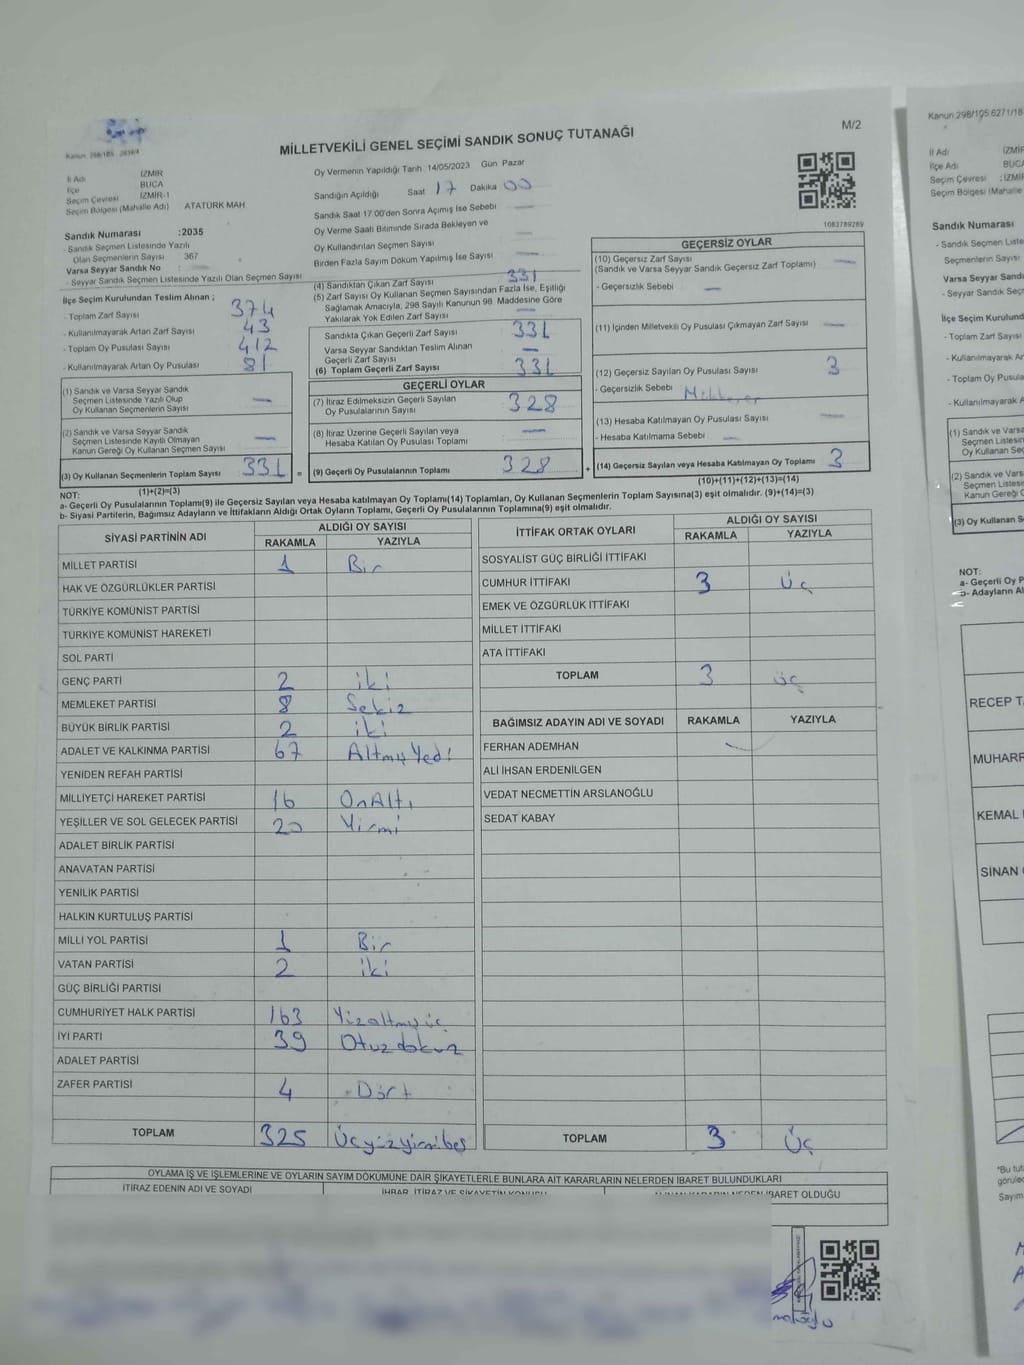 M/2
MİLLETVEKİLİ GENEL SEÇİMİ SANDIK SONUÇ TUTANAĞI
İl Adı İZMİR
İlçe BUCA
Seçim Çevresi İZMİR-1
Seçim Bölgesi (Mahalle Adı) ATATÜRK MAH
Sandık Numarası :2035
- Sandık Seçmen Listesinde Yazılı
Olan Seçmenlerin Sayısı 367
Varsa Seyyar Sandık No :
- Seyyar Sandık Seçmen Listesinde Yazılı Olan Seçmen Sayısı
Oy Vermenin Yapıldığı Tarih 14/05/2023 Gün Pazar
Sandığın Açıldığı Saat 17 Dakika 00
Sandık Saat 17.00'den Sonra Açılmış İse Sebebi
Oy Verme Saati Bitiminde Sırada Bekleyen ve
Oy Kullandırılan Seçmen Sayısı
Birden Fazla Sayım Döküm Yapılmış İse Sayısı
1083789289
İlçe Seçim Kurulundan Teslim Alınan ;
- Toplam Zarf Sayısı 374
- Kullanılmayarak Artan Zarf Sayısı 43
- Toplam Oy Pusulası Sayısı 412
- Kullanılmayarak Artan Oy Pusulası 81
(1) Sandık ve Varsa Seyyar Sandık
Seçmen Listesinde Yazılı Olup
Oy Kullanan Seçmenlerin Sayısı —
(2) Sandık ve Varsa Seyyar Sandık
Seçmen Listesinde Kayıtlı Olmayan
Kanun Gereği Oy Kullanan Seçmen Sayısı —
(3) Oy Kullanan Seçmenlerin Toplam Sayısı 331 =
(1)+(2)=(3)
(4) Sandıktan Çıkan Zarf Sayısı 331
(5) Zarf Sayısı Oy Kullanan Seçmen Sayısından Fazla İse, Eşitliği
Sağlamak Amacıyla, 298 Sayılı Kanunun 98. Maddesine Göre
Yakılarak Yok Edilen Zarf Sayısı —
Sandıkta Çıkan Geçerli Zarf Sayısı 331
Varsa Seyyar Sandıktan Teslim Alınan
Geçerli Zarf Sayısı —
(6) Toplam Geçerli Zarf Sayısı 331
GEÇERLİ OYLAR
(7) İtiraz Edilmeksizin Geçerli Sayılan
Oy Pusulalarının Sayısı 328
(8) İtiraz Üzerine Geçerli Sayılan veya
Hesaba Katılan Oy Pusulası Toplamı —
(9) Geçerli Oy Pusulalarının Toplamı 328 +
GEÇERSİZ OYLAR
(10) Geçersiz Zarf Sayısı —
(Sandık ve Varsa Seyyar Sandık Geçersiz Zarf Toplamı)
- Geçersizlik Sebebi —
(11) İçinden Milletvekili Oy Pusulası Çıkmayan Zarf Sayısı —
(12) Geçersiz Sayılan Oy Pusulası Sayısı 3
- Geçersizlik Sebebi
(13) Hesaba Katılmayan Oy Pusulası Sayısı —
- Hesaba Katılmama Sebebi —
(14) Geçersiz Sayılan veya Hesaba Katılmayan Oy Toplamı 3
(10)+(11)+(12)+(13)=(14)
NOT:
a- Geçerli Oy Pusulalarının Toplamı(9) ile Geçersiz Sayılan veya Hesaba katılmayan Oy Toplamı(14) Toplamları, Oy Kullanan Seçmenlerin Toplam Sayısına(3) eşit olmalıdır. (9)+(14)=(3)
b- Siyasi Partilerin, Bağımsız Adayların ve İttifakların Aldığı Ortak Oyların Toplamı, Geçerli Oy Pusulalarının Toplamına(9) eşit olmalıdır.
SİYASİ PARTİNİN ADI ALDIĞI OY SAYISI
RAKAMLA YAZIYLA
MİLLET PARTİSİ 1 Bir
HAK VE ÖZGÜRLÜKLER PARTİSİ
TÜRKİYE KOMÜNİST PARTİSİ
TÜRKİYE KOMÜNİST HAREKETİ
SOL PARTİ
GENÇ PARTİ 2 iki
MEMLEKET PARTİSİ 8 Sekiz
BÜYÜK BİRLİK PARTİSİ 2 iki
ADALET VE KALKINMA PARTİSİ 67 Altmış Yedi
YENİDEN REFAH PARTİSİ
MİLLİYETÇİ HAREKET PARTİSİ 16 On Altı
YEŞİLLER VE SOL GELECEK PARTİSİ 20 Yirmi
ADALET BİRLİK PARTİSİ
ANAVATAN PARTİSİ
YENİLİK PARTİSİ
HALKIN KURTULUŞ PARTİSİ
MİLLİ YOL PARTİSİ 1 Bir
VATAN PARTİSİ 2 iki
GÜÇ BİRLİĞİ PARTİSİ
CUMHURİYET HALK PARTİSİ 163 Yüzaltmışüç
İYİ PARTİ 39 Otuz dokuz
ADALET PARTİSİ
ZAFER PARTİSİ 4 Dört
TOPLAM 325 Üçyüzyirmibeş
İTTİFAK ORTAK OYLARI ALDIĞI OY SAYISI
RAKAMLA YAZIYLA
SOSYALİST GÜÇ BİRLİĞİ İTTİFAKI
CUMHUR İTTİFAKI 3 Üç
EMEK VE ÖZGÜRLÜK İTTİFAKI
MİLLET İTTİFAKI
ATA İTTİFAKI
TOPLAM 3 üç
BAĞIMSIZ ADAYIN ADI VE SOYADI RAKAMLA YAZIYLA
FERHAN ADEMHAN
ALİ İHSAN ERDENİLGEN
VEDAT NECMETTİN ARSLANOĞLU
SEDAT KABAY
TOPLAM 3 Üç
OYLAMA İŞ VE İŞLEMLERİNE VE OYLARIN SAYIM DÖKÜMÜNE DAİR ŞİKAYETLERLE BUNLARA AİT KARARLARIN NELERDEN İBARET BULUNDUKLARI
İTİRAZ EDENİN ADI VE SOYADI
Kanun 298/105 6271/18
İl Adı İZMİR
İlçe Adı BUCA
Seçim Çevresi : İZMİR
Seçim Bölgesi (Mahalle
Sandık Numarası
- Sandık Seçmen Liste
Seçmenlerin Sayısı
Varsa Seyyar Sandı
- Seyyar Sandık Seç
İlçe Seçim Kurulund
- Toplam Zarf Sayısı
- Kullanılmayarak
- Toplam Oy Pusula
- Kullanılmayarak A
(1) Sandık ve Vars
Seçmen Listesi
Oy Kullanan Se
(2) Sandık ve Vars
Seçmen Listesin
Kanun Gereği O
(3) Oy Kullanan S
NOT:
a- Geçerli Oy P
b- Adayların Al
RECEP T
MUHARR
KEMAL
SİNAN
*Bu tut
görülec
Sayım